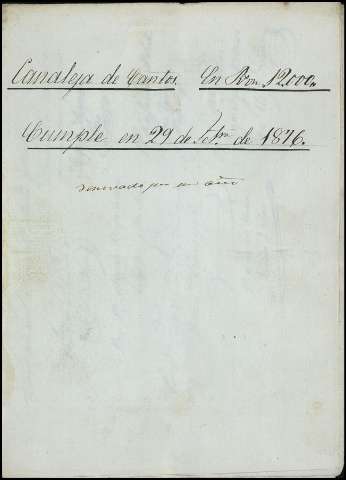 Canaleja de Cantos En Rvon. 12.000"
Cumple en 29 de Setbre. de 1876.
renovado por un año